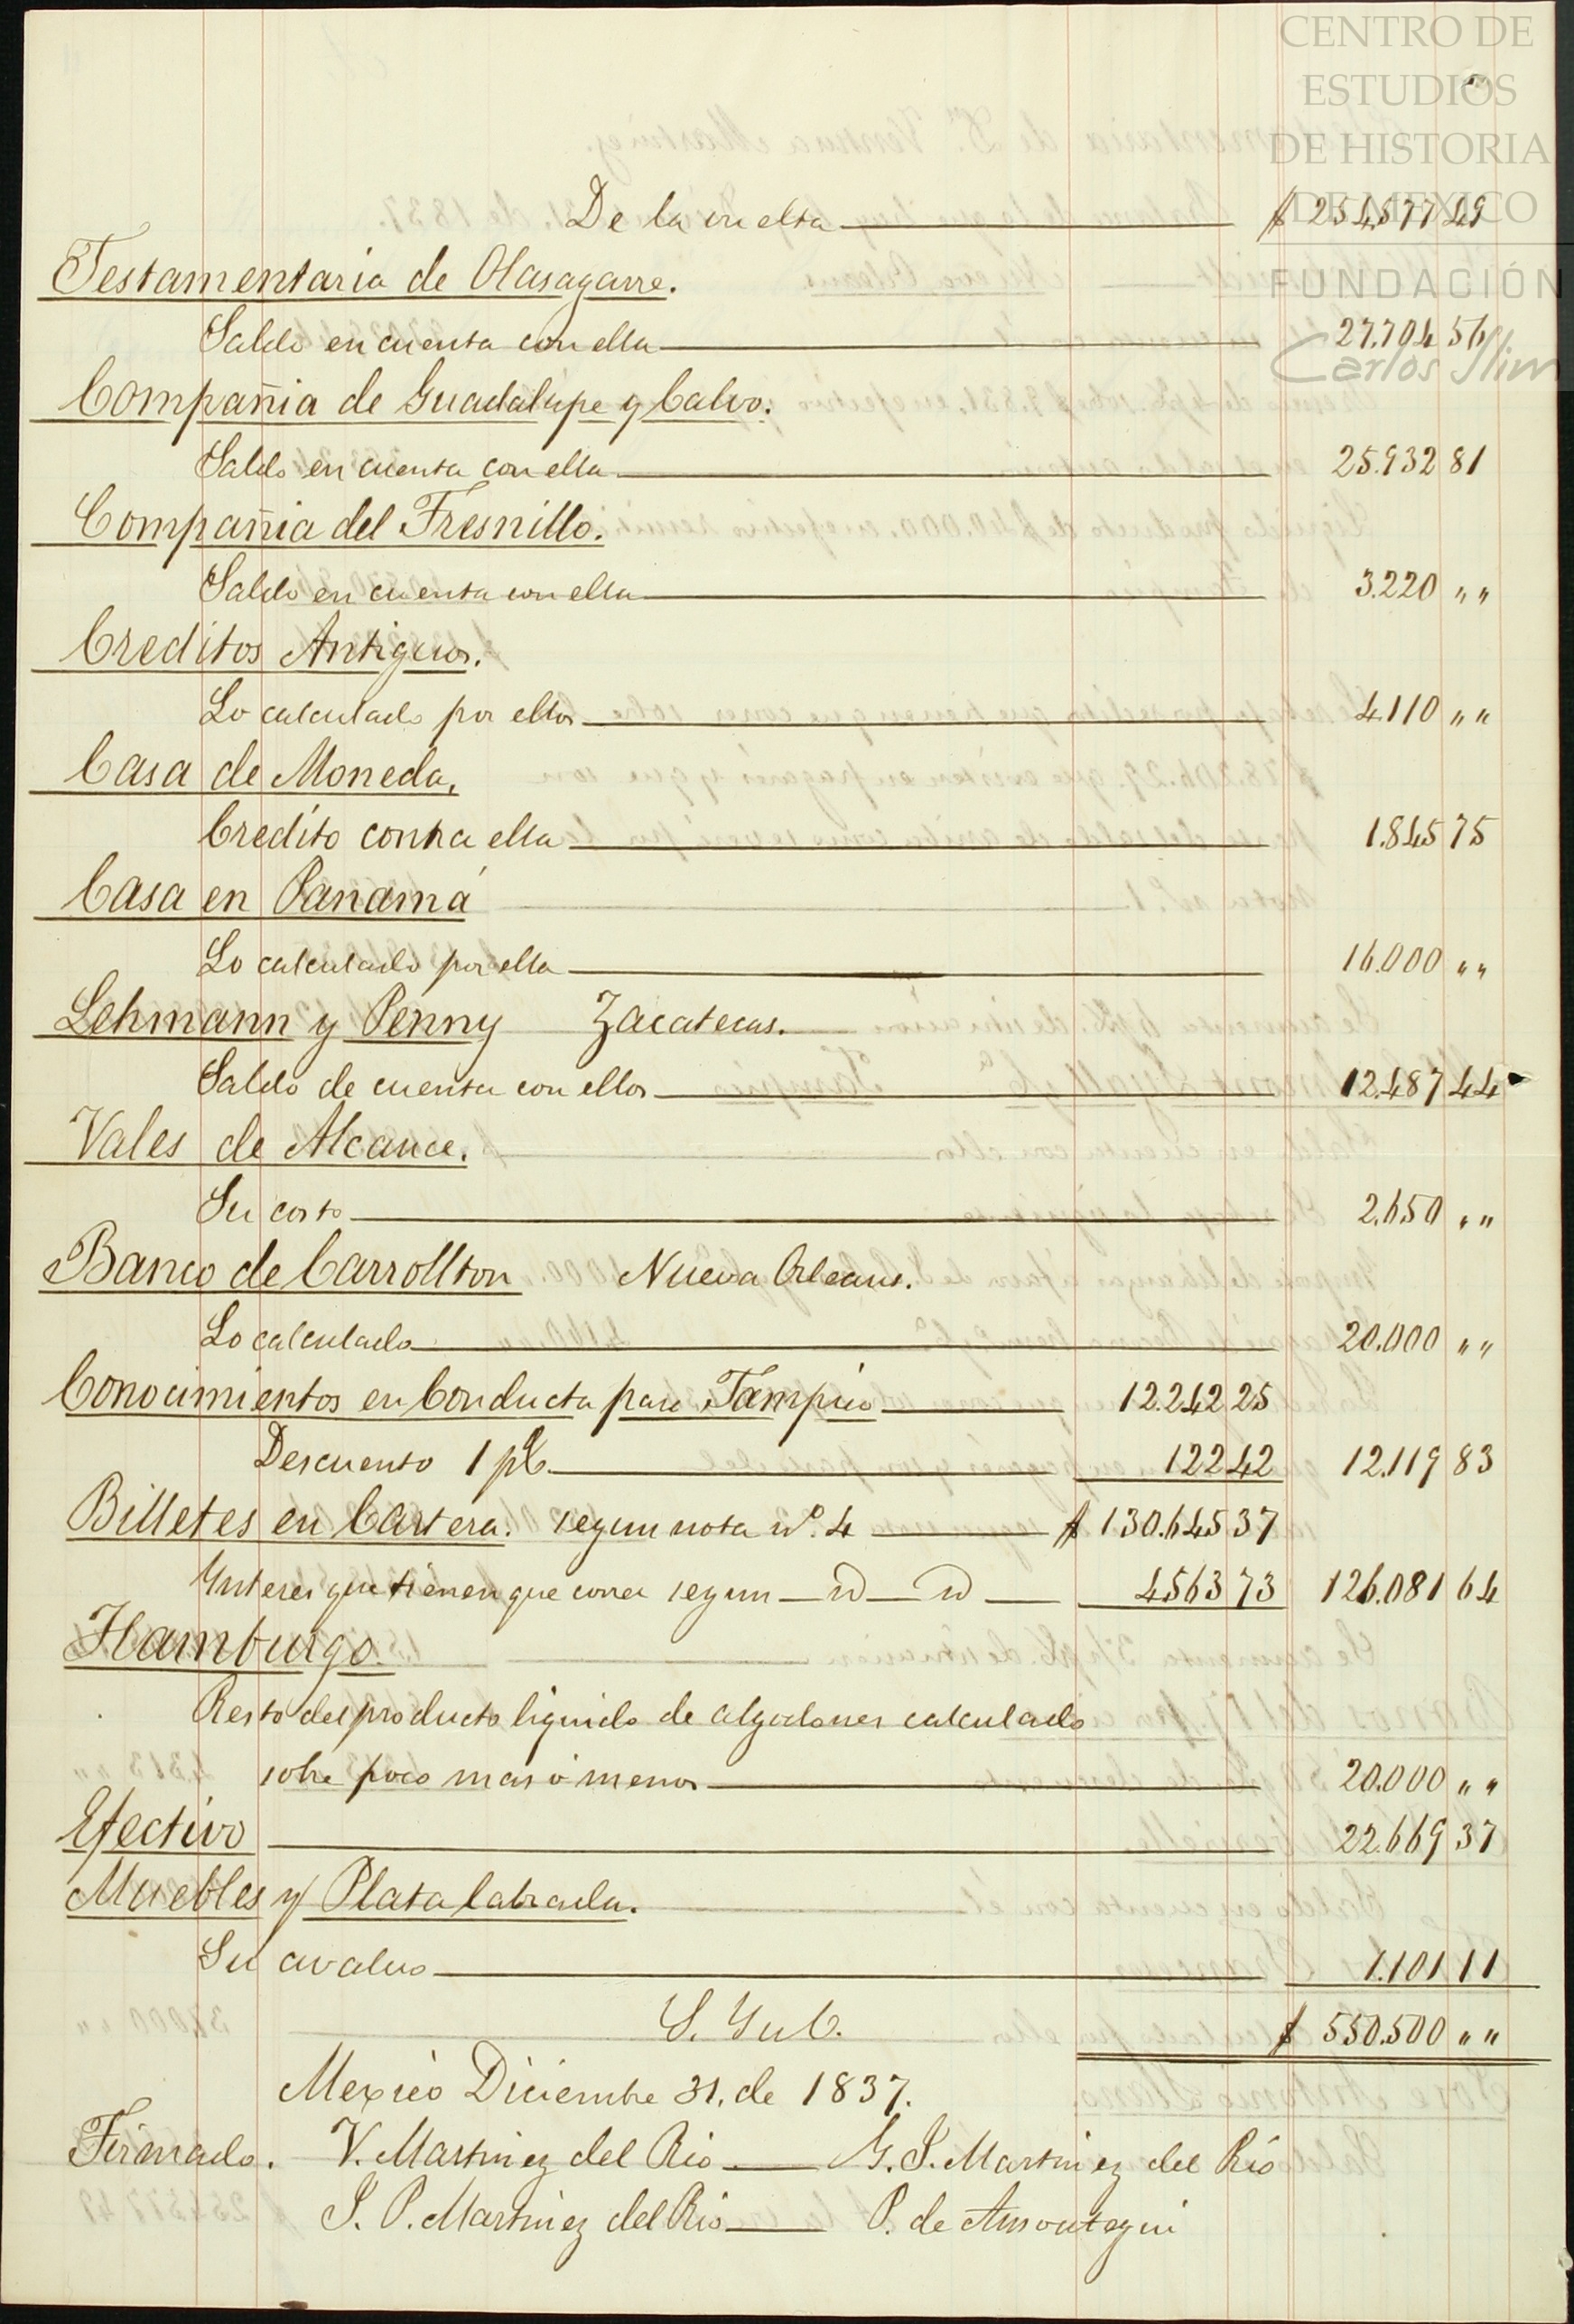 CENTRO DE
ESTUDIOS
DE HISTORIA
DE MEXICO
FUNDACIÓN
Carlos Slim
De la vuelta $ 254.577 49
Testamentaria de Olasagarre.
Saldo en cuenta con ella 27.704 56
Compañia de Guadalupe y Calvo.
Saldo en cuenta con ella 25.932 81
Compañia del Fresnillo.
Saldo en cuenta con ella 3.220 " "
Creditos Antiguos.
Lo calculado por ellos 4.110 " "
Casa de Moneda.
Credito contra ella 1.845 75
Casa en Panamá
Lo calculado por ella 16.000 " "
Lehmann y Penny Zacatecas.
Saldo de cuenta con ellos 12.487 44
Vales de Alcance.
Su costo 2.650 " "
Banco de Carrollton Nueva Orleans.
Lo calculado 20.000 " "
Conocimientos en Conducta para Tampico 12.242 25
Descuento 1 p% 122 42 12.119 83
Billetes en Cartera. segun nota nº. 4 $ 130.645 37
Interes que tienen que correr segun 4563 73 126.081 64
Hamburgo.
Resto del producto liquido de algodones calculado
sobre poco mas ó menos 20.000 " "
Efectivo 22.669 37
Muebles y Plata labrada.
Su avaluo 1.101 11
S. Y u O. $ 550.500 " "
Mexico Diciembre 31. de 1837.
Firmado. V. Martinez del Rio — G. S. Martinez del Rio
S. P. Martinez del Rio — P. de Ansoategui